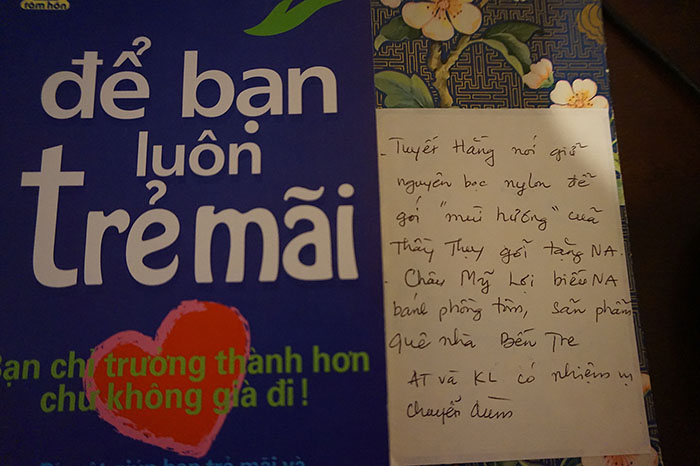 để bạn
luôn
trẻ mãi
Bạn chỉ trưởng thành hơn
chứ không già đi!
- Tuyết Hằng nói giữ
nguyên bọc nylon để
gói "mùi hương" của
Thầy Thụy gởi tặng NA.
- Châu Mỹ Lợi biếu NA
bánh phồng tôm, sản phẩm
quê nhà Bến Tre
AT và KL có nhiệm vụ
chuyển dùm